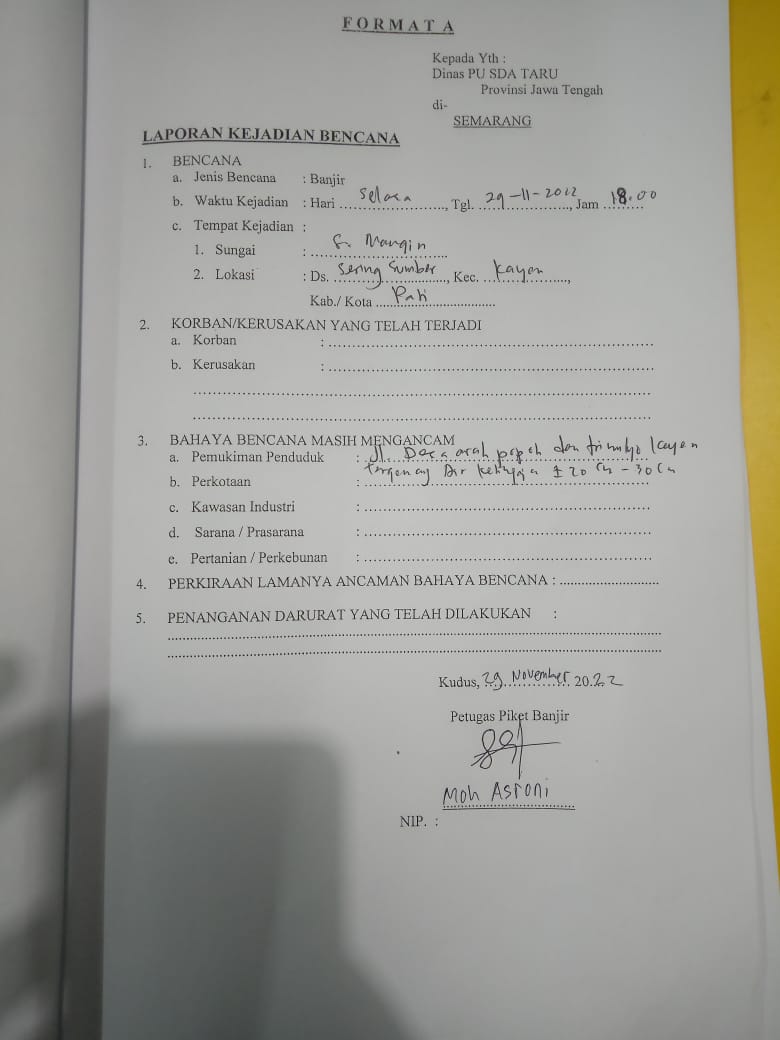 FORMAT A
Kepada Yth :
Dinas PU SDA TARU
Provinsi Jawa Tengah
di-
SEMARANG
LAPORAN KEJADIAN BENCANA
1. BENCANA
a. Jenis Bencana : Banjir
b. Waktu Kejadian : Hari Selasa, Tgl. 29-11-2022, Jam 18.00
c. Tempat Kejadian :
1. Sungai : S. Mangin
2. Lokasi : Ds. Sering Sumber, Kec. Kayen,
Kab./ Kota Pati
2. KORBAN/KERUSAKAN YANG TELAH TERJADI
a. Korban :
b. Kerusakan :
3. BAHAYA BENCANA MASIH MENGANCAM
a. Pemukiman Penduduk : Jl. Desa arah dan Kayen
b. Perkotaan : Air ± 20 Cm - 30 Cm
c. Kawasan Industri :
d. Sarana / Prasarana :
e. Pertanian / Perkebunan :
4. PERKIRAAN LAMANYA ANCAMAN BAHAYA BENCANA :
5. PENANGANAN DARURAT YANG TELAH DILAKUKAN :
Kudus, 29 November 2022
Petugas Piket Banjir
Moh Asroni
NIP. :